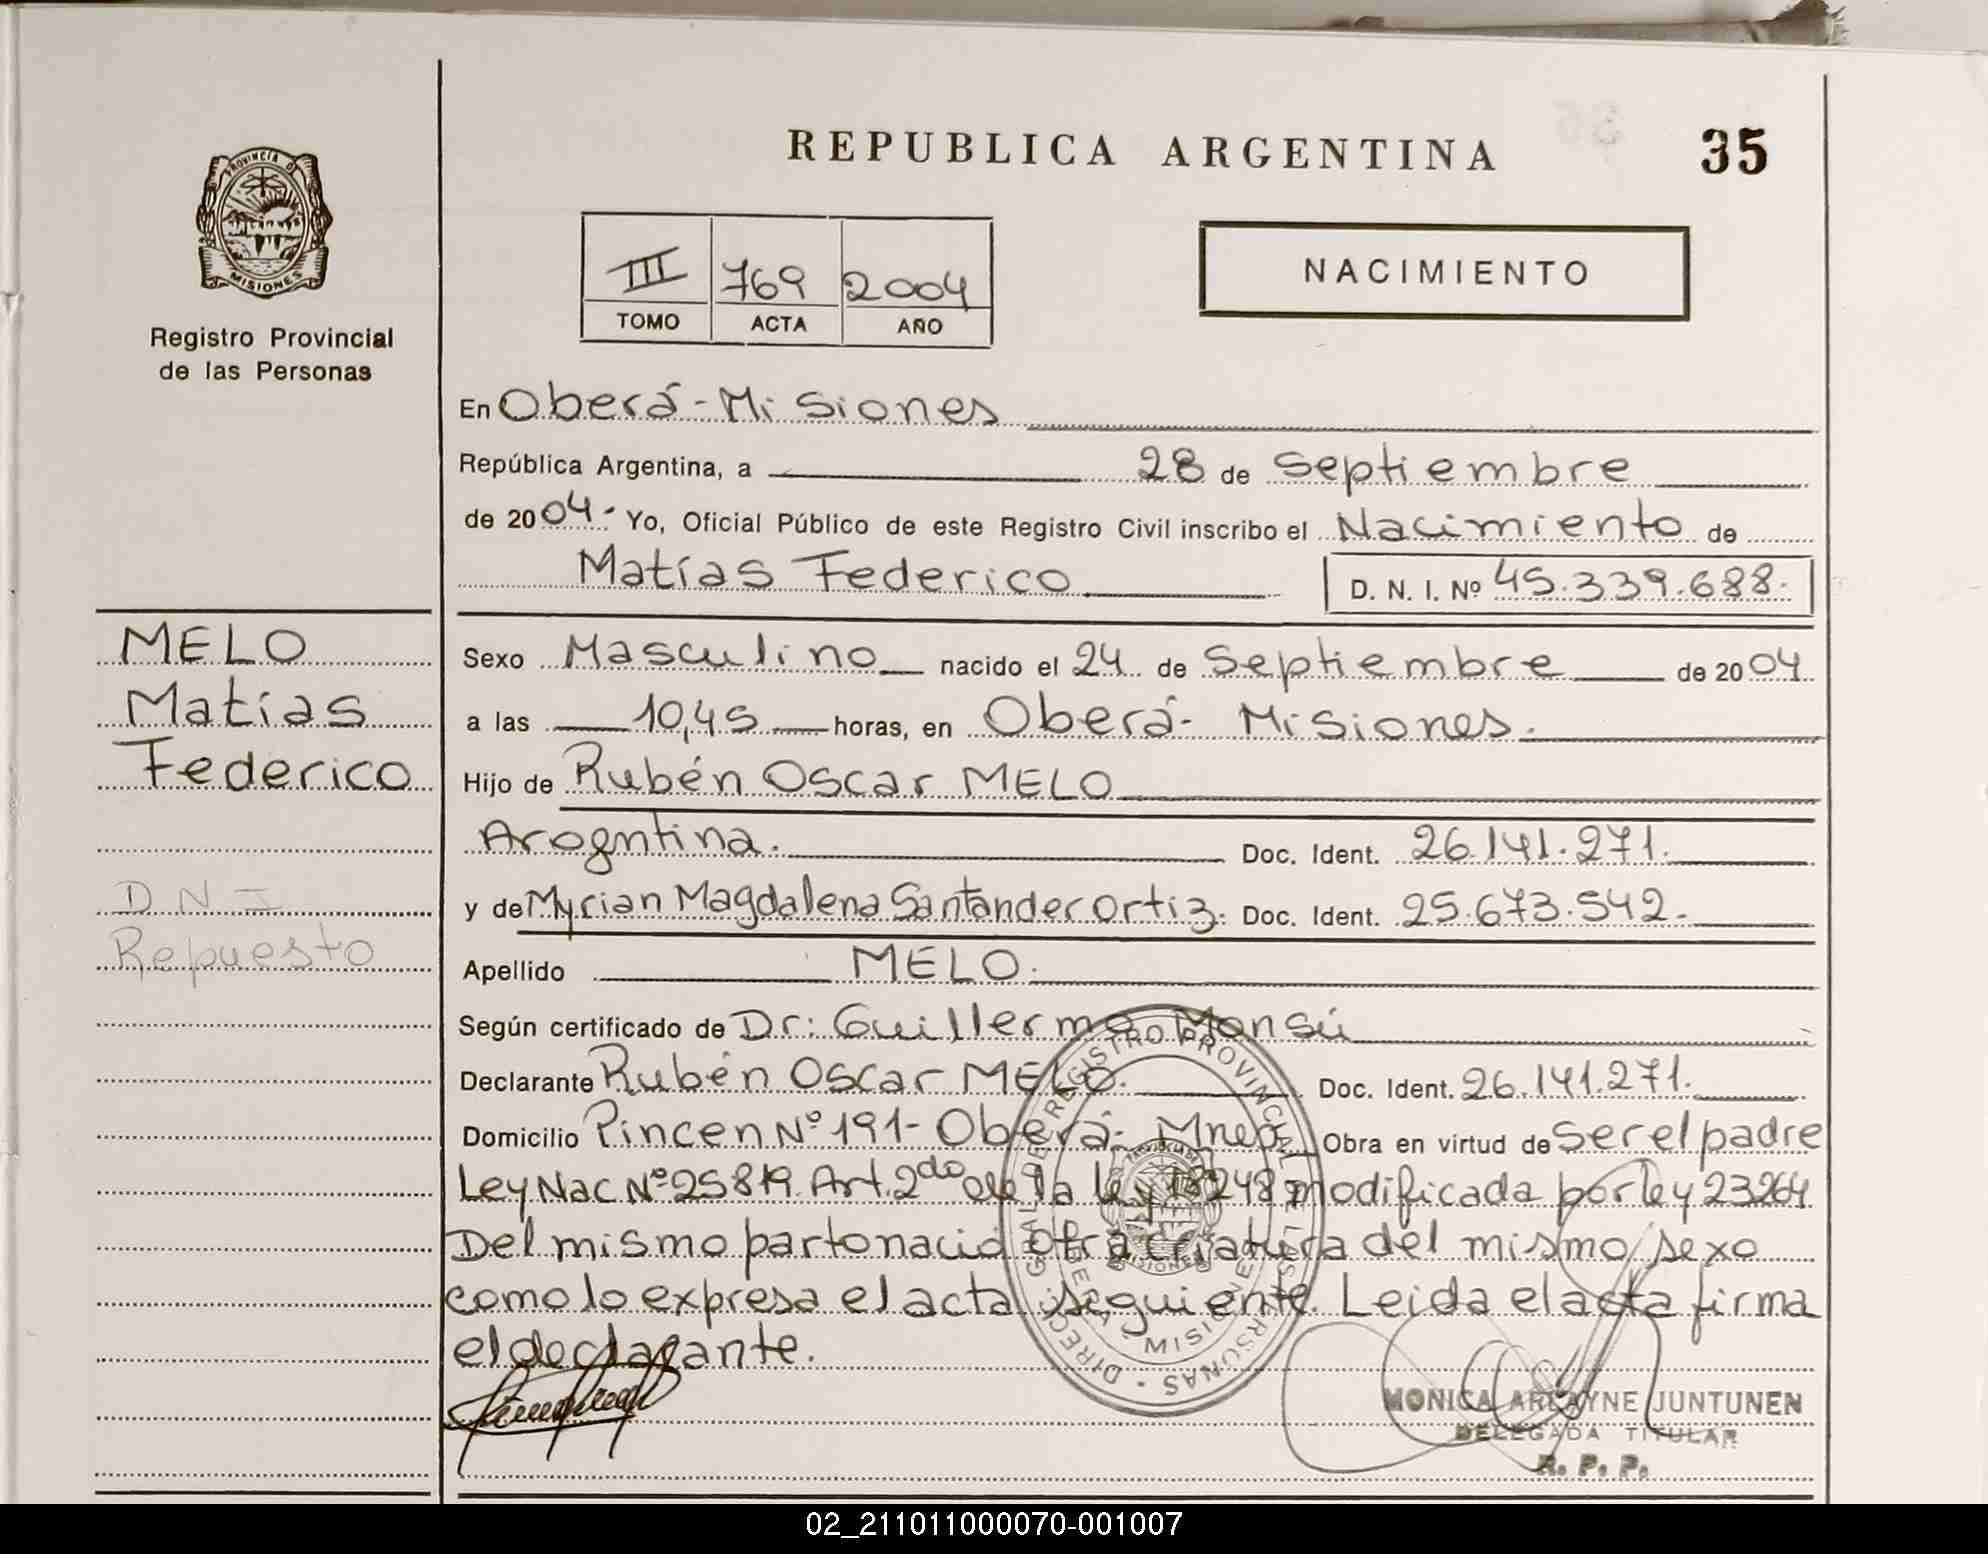 REPUBLICA ARGENTINA 35
PROVINCIA DE
MISIONES
Registro Provincial
de las Personas
III 769 2004
TOMO ACTA AÑO
NACIMIENTO
En Oberá-Misiones
República Argentina, a 28 de Septiembre
de 2004.- Yo, Oficial Público de este Registro Civil inscribo el Nacimiento de
Matías Federico D. N. I. Nº 45.339.688.
MELO
Matías
Federico
D N I
Repuesto
Sexo Masculino nacido el 24 de Septiembre de 2004
a las 10,45 horas, en Oberá- Misiones.
Hijo de Rubén Oscar MELO
Arogntina. Doc. Ident. 26.141.271.
y de Myrian Magdalena Santander Ortiz. Doc. Ident. 25.673.542.
Apellido MELO.
Según certificado de Dr: Guillermo Monsú
Declarante Rubén Oscar MELO. Doc. Ident. 26.141.271.
Domicilio Pincen Nº 191- Oberá- Mnes. Obra en virtud de Ser el padre
Ley Nac Nº 25819 Art. 2do de la ley 18248 modificada por ley 23264
Del mismo parto nació otra criatura del mismo sexo
como lo expresa el acta siguiente. Leida el acta firma
el declarante.
MONICA ARLAYNE JUNTUNEN
DELEGADA TITULAR
R. P. P.
02_211011000070-001007